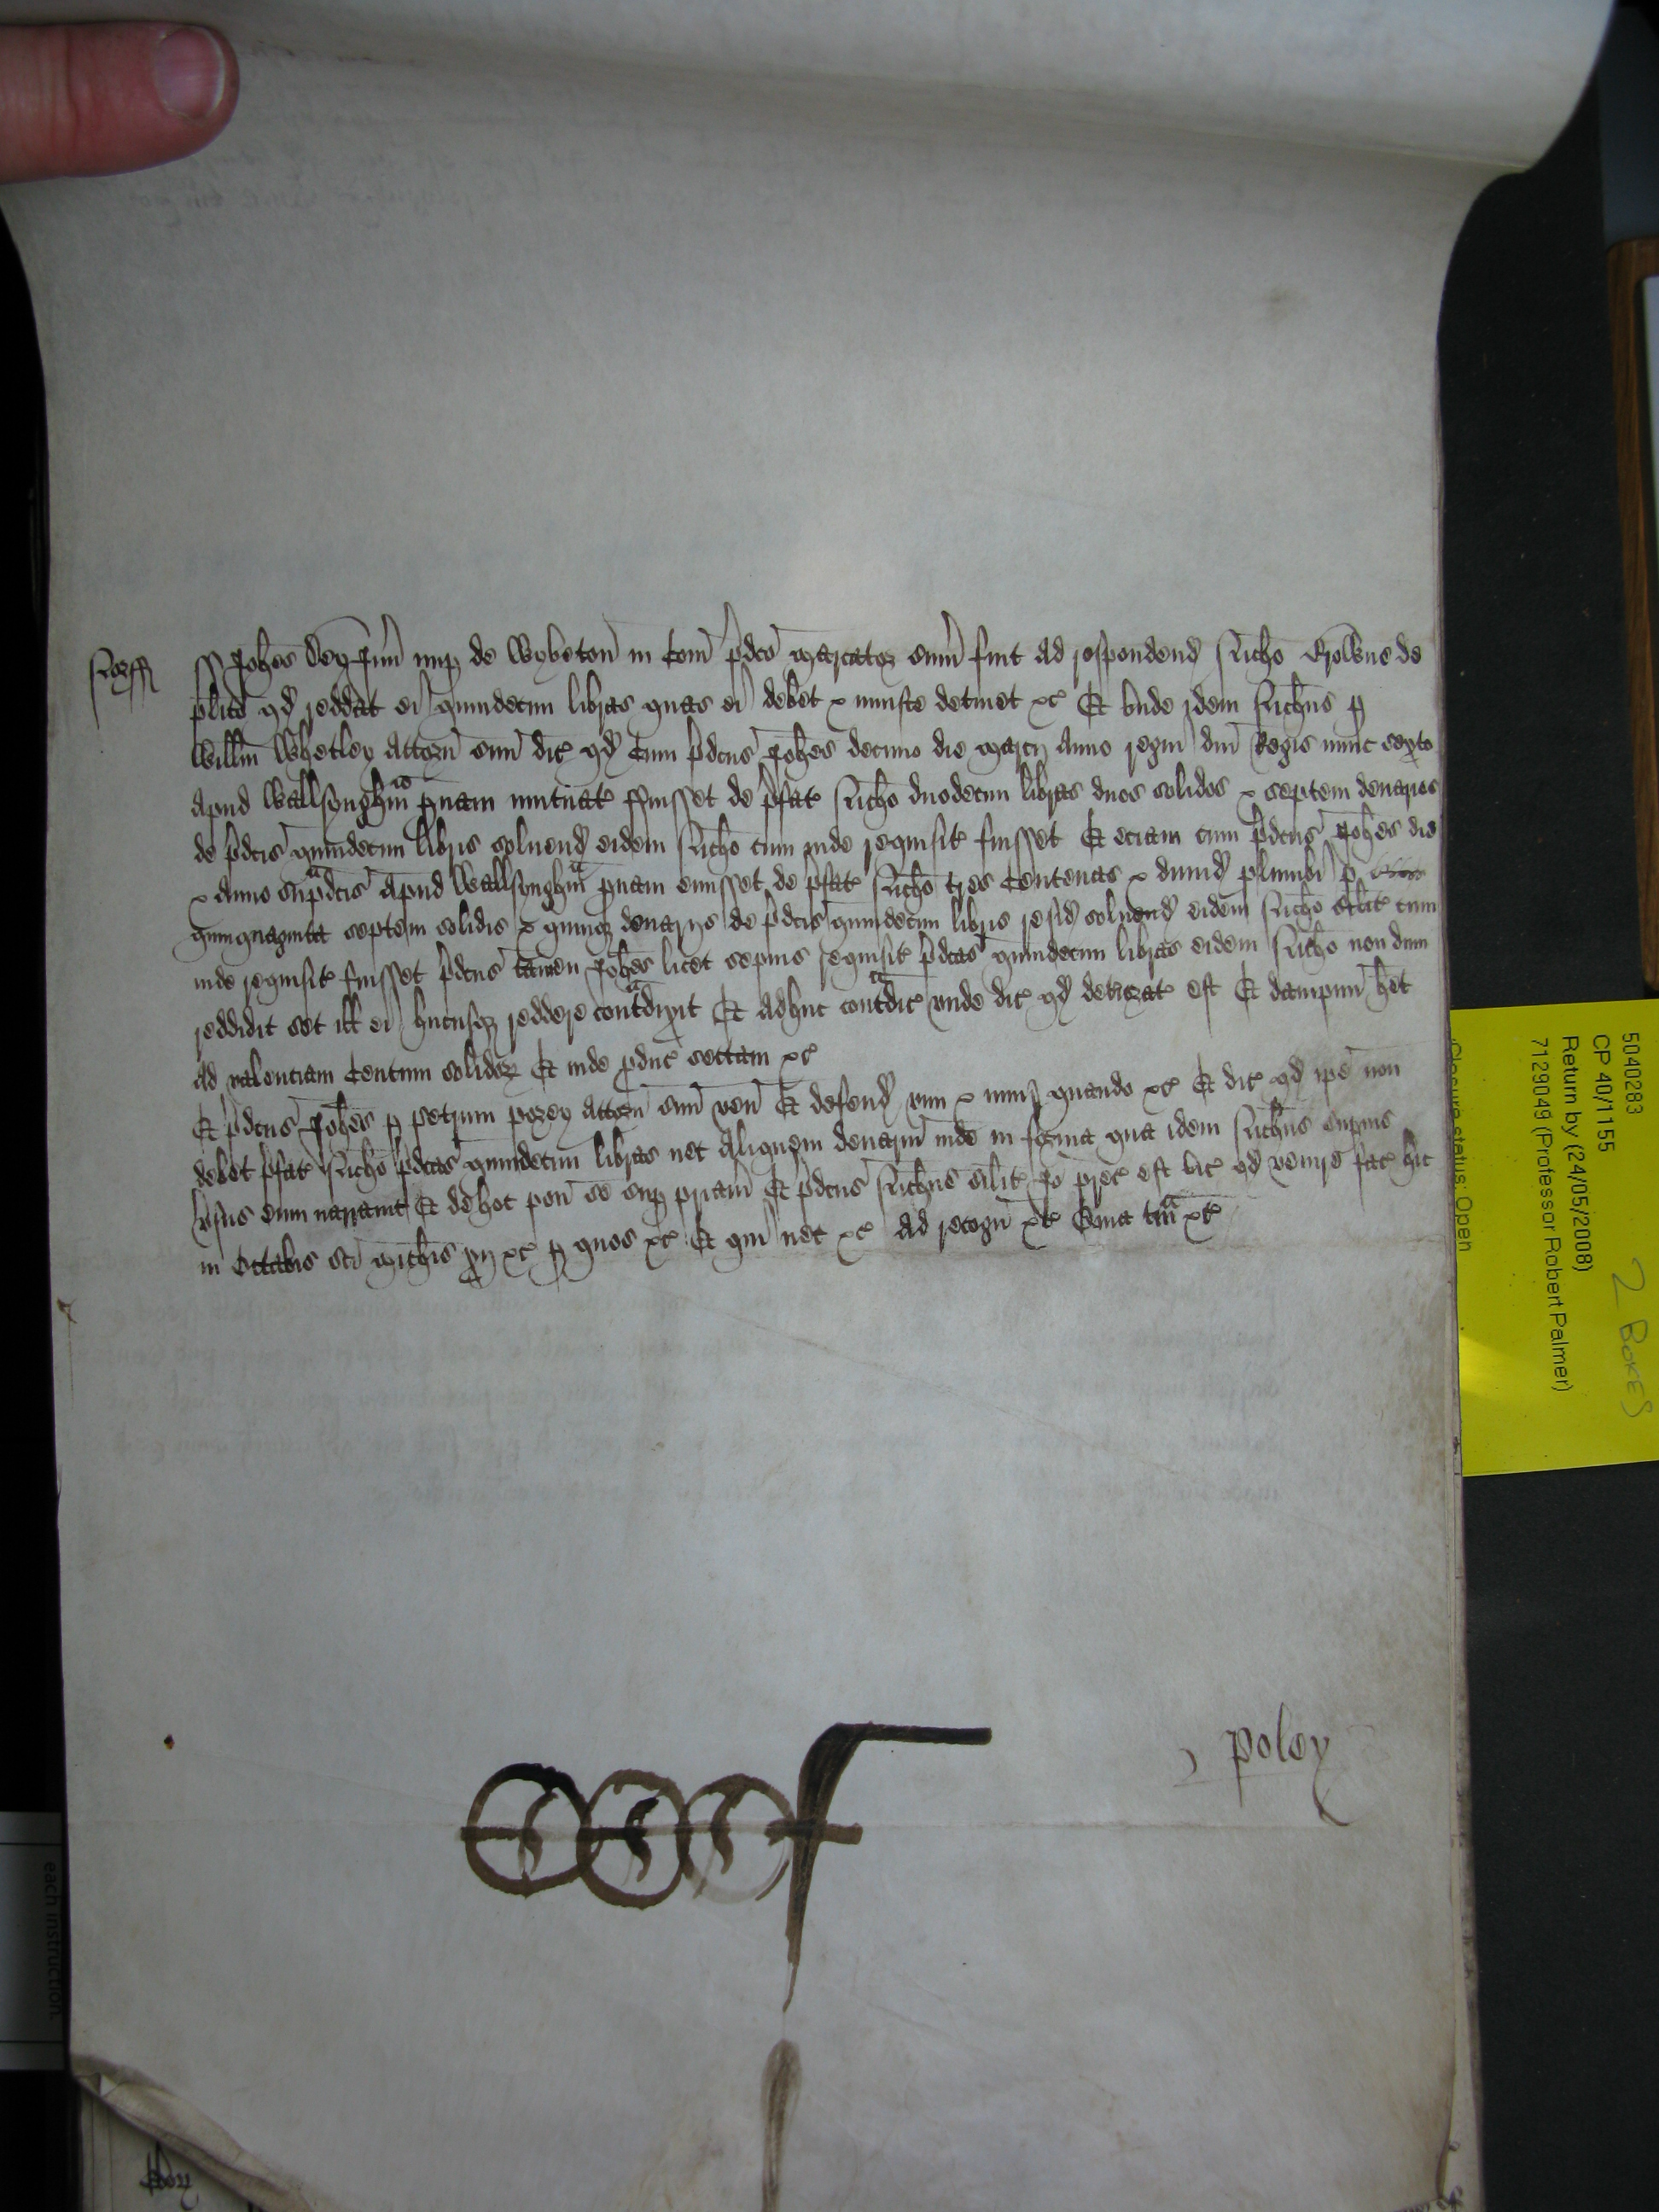 Norff
ss Johes Dey Jun nup de Wybeton in Com pdco marcator sum fuit ad respondend Richo Crowne de
plito qd reddat ei quindecim libras quas ei debet & iniuste detinet &c Et unde idem Richus p
Willm Whetley attorn suum dic qd cum pdcus Johes decimo die marcij anno regni dni Regis nunc sexto
apud Wallsynghm puam mutuat ffuisset de pfat Richo duodecim libras duos solidos & septem denarios
de pdcis quindecim libris solvend eidem Richo cum inde requisit fuisset Et eciam cum pdcus Johes die
& anno supdcis apud Wallsynghm puam emisset de pfat Richo tres centenas & dimid plumbi p
quinquaginta septem solidis & quinq denarijs de pdcis quindecim libris resid solvend eidem Richo silit cum
inde requisit fuisset pdcus tamen Johes licet sepius requisit pdcas quindecim libras eidem Richo non dum
reddidit set ill ei hucusq reddere contdixit Et adhuc contdic unde dic qd deteriorat est Et dampnum het
ad valenciam Centum solidor Et inde pduc sectam &c
Et pdcus Johes p Petrum Povey attorn suum ven Et defend vim & iniur quando &c Et dic qd ipe non
debet pfat Richo pdcas quindecim libras nec aliquem denarium inde in forma qua idem Richus supius
vsus eum narravit Et de hoc pon se sup priam Et pdcus Richus silit Io prec est vic qd venire fac hic
in Octabis sci Michis xij &c p quos &c Et qui nec &c ad recogn &c Quia tam &c
Poley
5040283
CP 40/1155
Return by (24/05/2008)
7129049 (Professor Robert Palmer)
Closure status: Open
2 BOXES
each instruction.